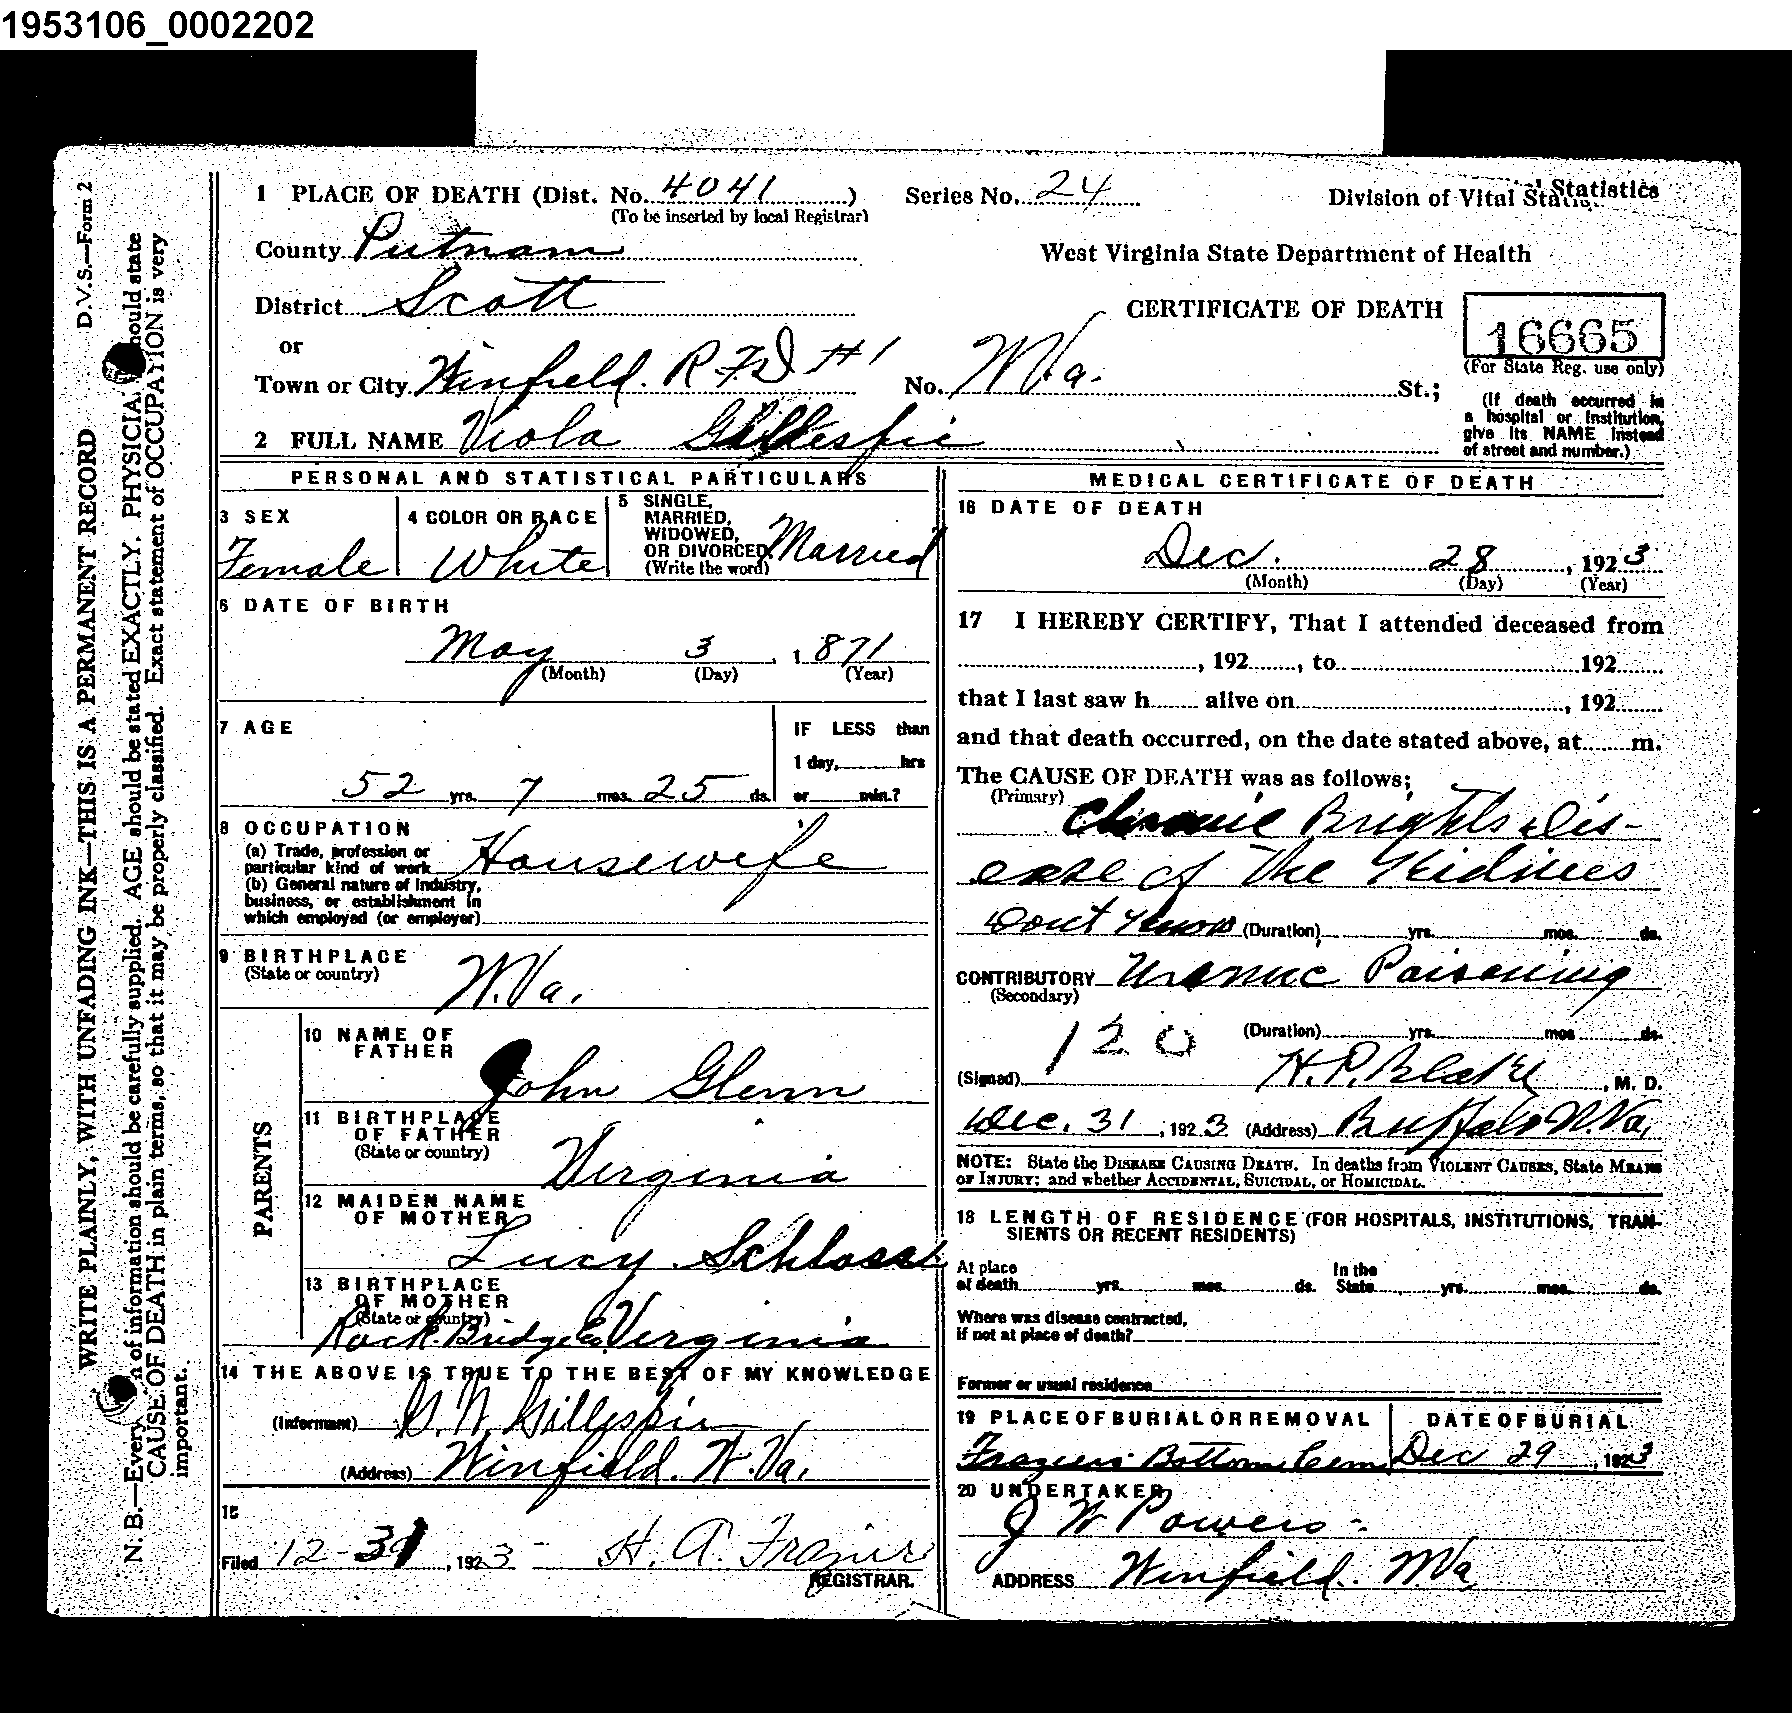 1953106_0002202
D.V.S.—Form 2
WRITE PLAINLY, WITH UNFADING INK—THIS IS A PERMANENT RECORD
N. B.—Every of information should be carefully supplied. AGE should be stated EXACTLY. PHYSICIA hould state
CAUSE OF DEATH in plain terms, so that it may be properly classified. Exact statement of OCCUPATION is very
important.
1 PLACE OF DEATH (Dist. No. 4041 ) Series No. 24 Division of Vital Statistics
(To be inserted by local Registrar)
County Putnam West Virginia State Department of Health
District Scott CERTIFICATE OF DEATH 16665
or (For State Reg. use only)
Town or City Winfield. R F D #1 No. W.Va. St.;
(If death occurred in
a hospital or institution,
give its NAME instead
of street and number.)
2 FULL NAME Viola Gillespie
PERSONAL AND STATISTICAL PARTICULARS
3 SEX
Female
4 COLOR OR RACE
White
5 SINGLE,
MARRIED,
WIDOWED,
OR DIVORCED
(Write the word) Married
6 DATE OF BIRTH
May 3, 1871
(Month) (Day) (Year)
7 AGE
52 yrs. 7 mos. 25 ds.
IF LESS than
1 day, hrs
or min.?
8 OCCUPATION
(a) Trade, profession or
particular kind of work Housewife
(b) General nature of industry,
business, or establishment in
which employed (or employer)
9 BIRTHPLACE
(State or country) W.Va.
PARENTS
10 NAME OF
FATHER
John Glenn
11 BIRTHPLACE
OF FATHER
(State or country) Virginia
12 MAIDEN NAME
OF MOTHER
Lucy
13 BIRTHPLACE
OF MOTHER
(State or country)
Rock Bridge Co Virginia
14 THE ABOVE IS TRUE TO THE BEST OF MY KNOWLEDGE
(Informant) Gillespie
(Address) Winfield. W.Va.
15
Filed 12-31, 1923 H. A. Frazier
REGISTRAR.
MEDICAL CERTIFICATE OF DEATH
16 DATE OF DEATH
Dec. 28, 1923
(Month) (Day) (Year)
17 I HEREBY CERTIFY, That I attended deceased from
, 192 , to 192
that I last saw h alive on , 192
and that death occurred, on the date stated above, at m.
The CAUSE OF DEATH was as follows;
(Primary) Chronic Brights Dis-
ease of the Kidnies
Dont Know (Duration) yrs. mos. ds.
CONTRIBUTORY Uremic Poisening
(Secondary)
120 (Duration) yrs. mos ds.
(Signed) H.P. Blake, M. D.
Dec. 31, 1923 (Address) Buffalo W.Va.
NOTE: State the DISEASE CAUSING DEATH. In deaths from VIOLENT CAUSES, State MEANS
OF INJURY; and whether ACCIDENTAL, SUICIDAL, or HOMICIDAL.
18 LENGTH OF RESIDENCE (FOR HOSPITALS, INSTITUTIONS, TRAN-
SIENTS OR RECENT RESIDENTS)
At place In the
of death yrs. mos. ds. State yrs. mos. ds.
Where was disease contracted,
if not at place of death?
Former or usual residence
19 PLACE OF BURIAL OR REMOVAL
Fraziers Bottom Cem
DATE OF BURIAL
Dec 29, 1923
20 UNDERTAKER
J W Powers
ADDRESS Winfield. W.Va